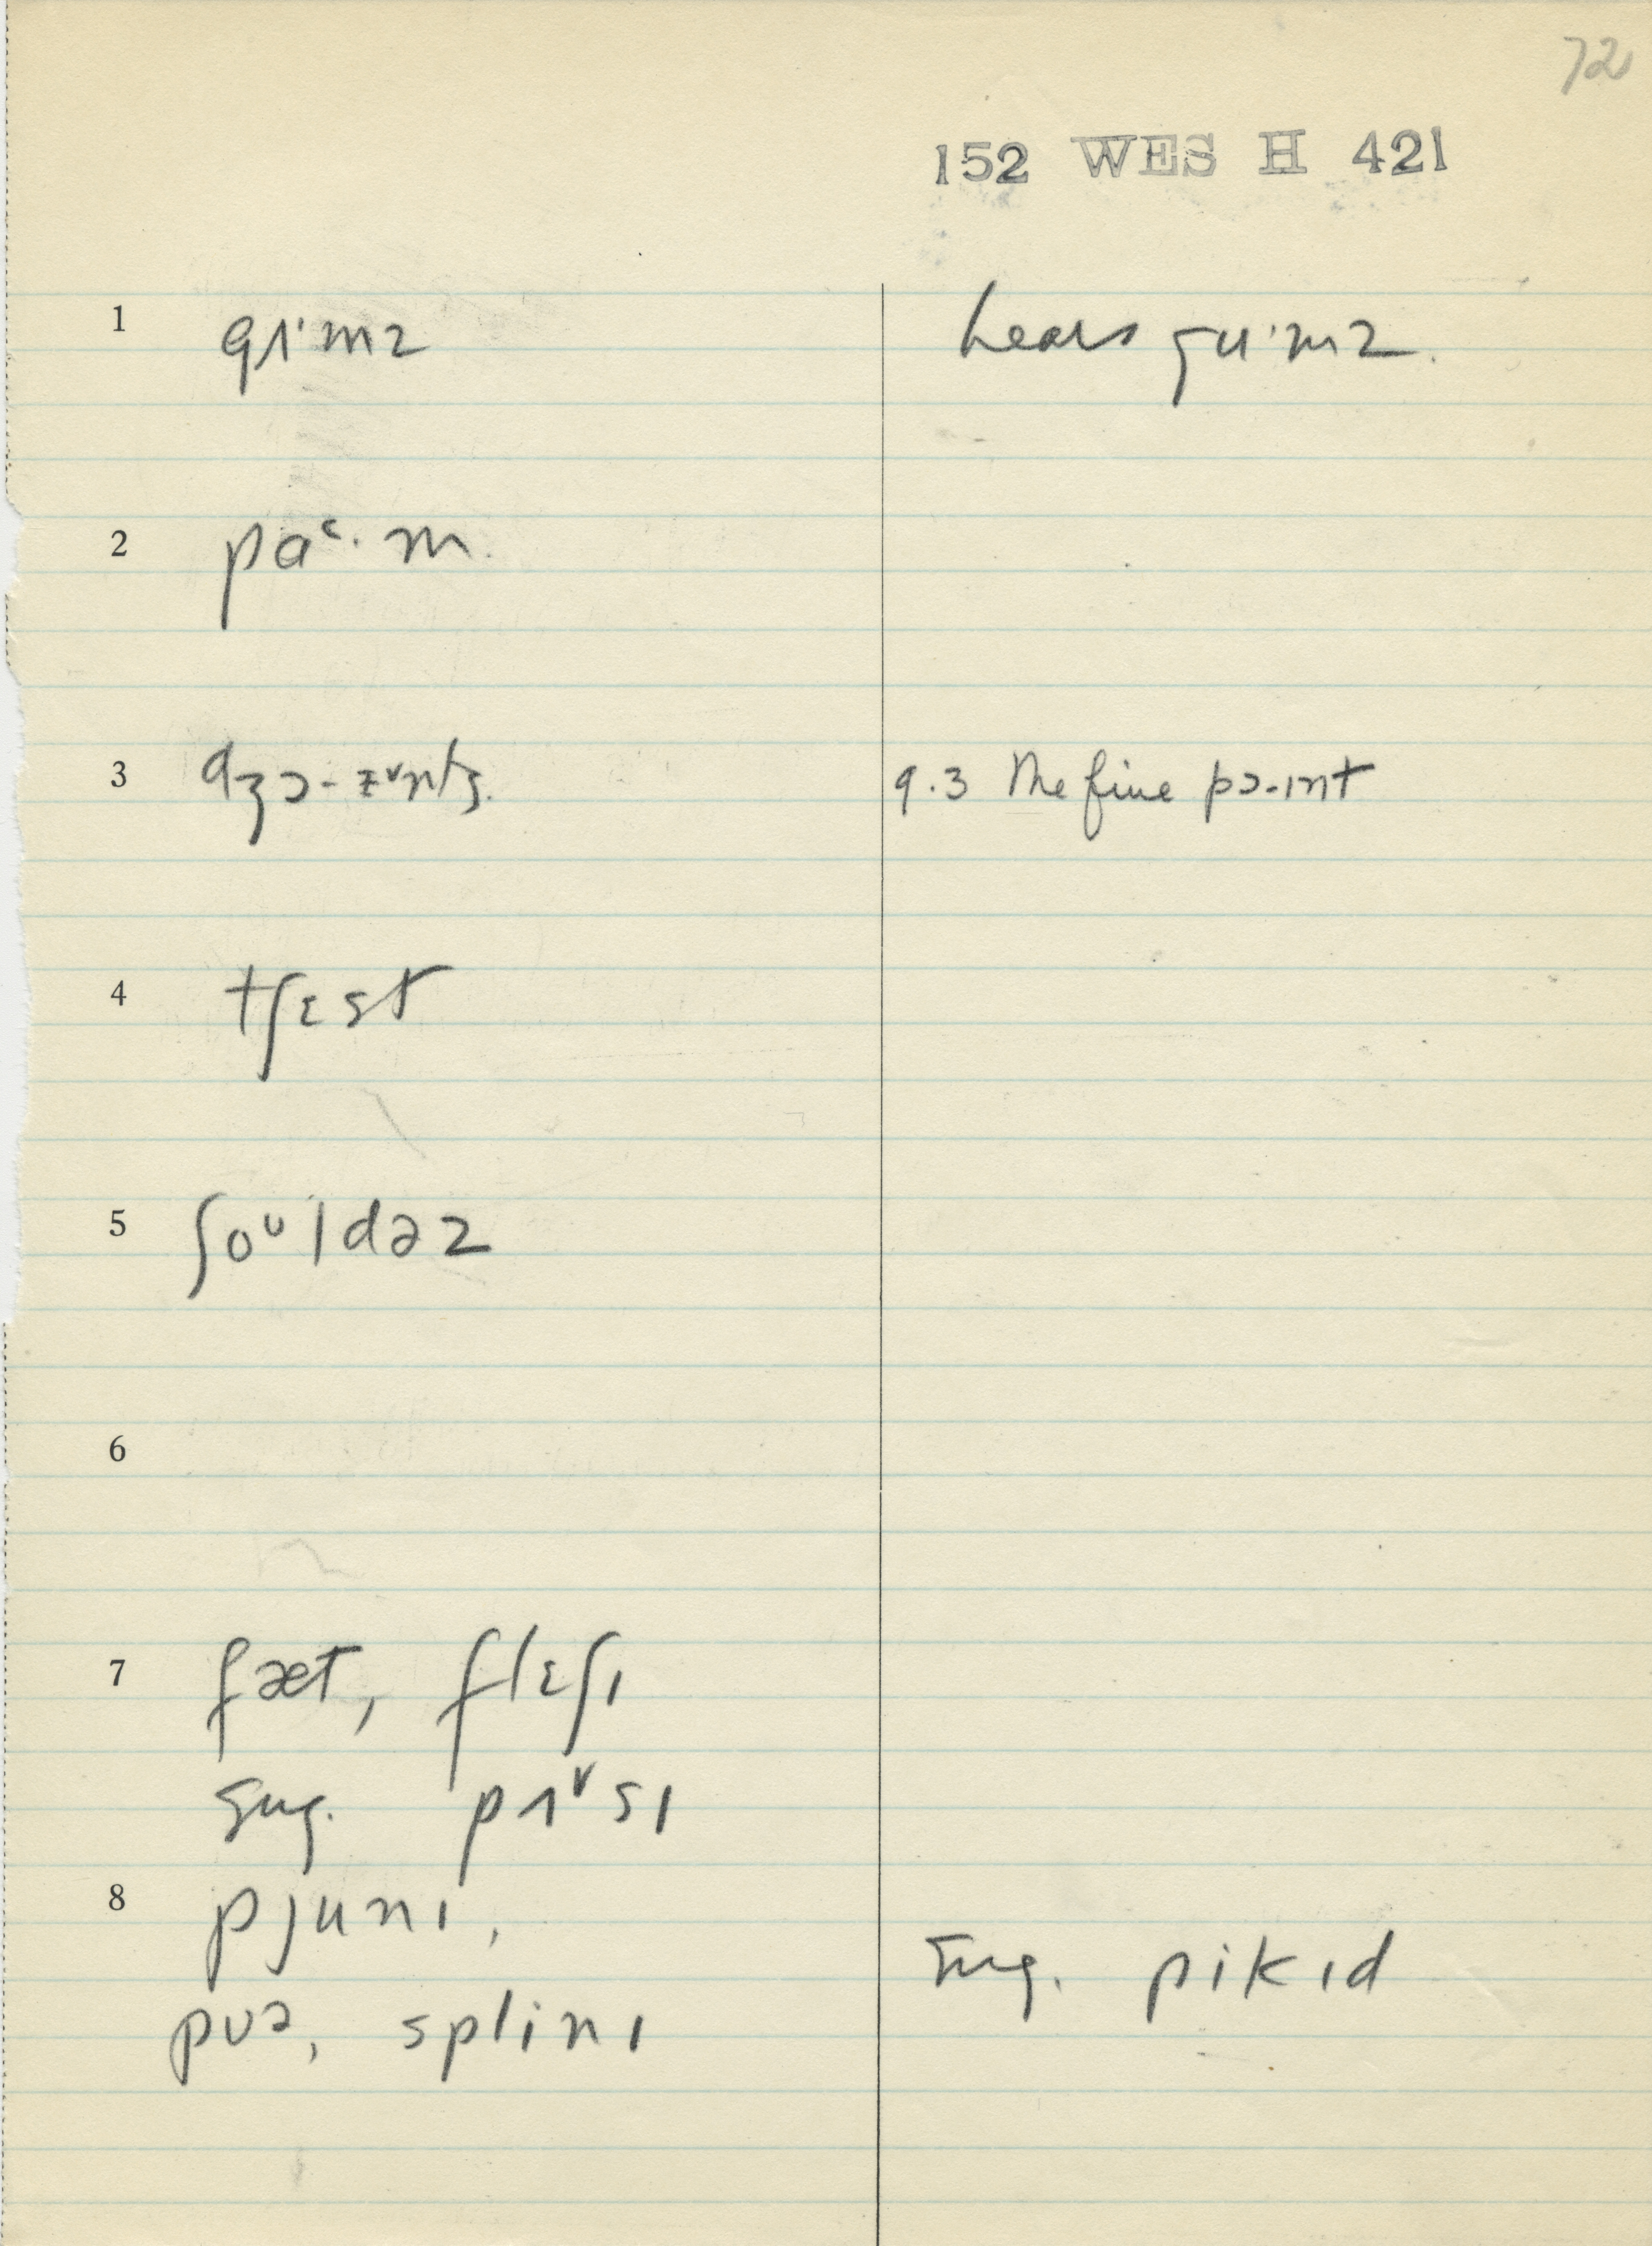 72
152 WES H 421
1 gɪ·mz hears gu·mz.
2 pɑ˂· m.
3 9.3 The fine pɔ-ɪnt
4 tʃɛst
5 ʃoᶷldəz
6
7 fæt, flɛʃɪ
sug. pʌ˅sɪ
8 pjunɪ,
sug. pikɪd
pʊə, splinɪ